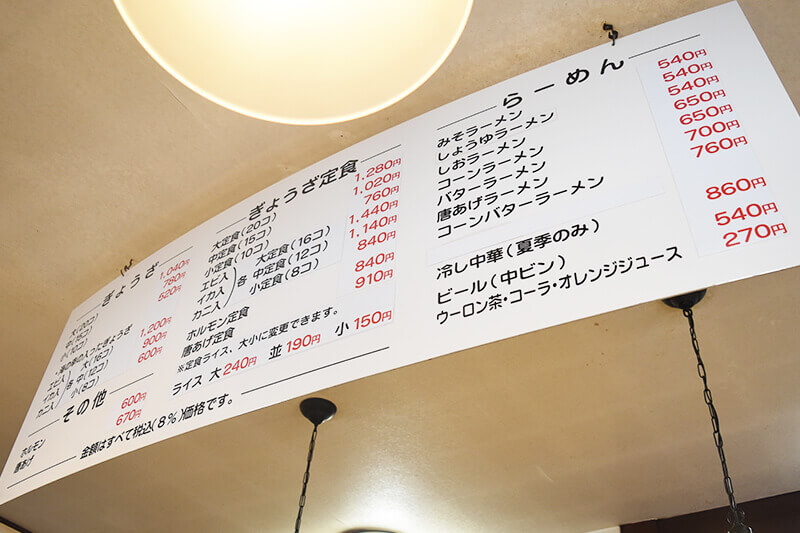 ぎょうざ
大(20コ) 1,040円
中(15コ) 780円
小(10コ) 520円
・海の幸の入ったぎょうざ
エビ入
イカ入
カニ入
各 大(16コ) 1,200円
中(12コ) 900円
小(8コ) 600円
その他
ホルモン 600円
唐あげ 670円
金額はすべて税込(8%)価格です。
ぎょうざ定食
大定食(20コ) 1,280円
中定食(15コ) 1,020円
小定食(10コ) 760円
エビ入
イカ入
カニ入
各 大定食(16コ) 1,440円
中定食(12コ) 1,140円
小定食(8コ) 840円
ホルモン定食 840円
唐あげ定食 910円
※定食ライス、大小に変更できます。
ライス 大 240円 並 190円 小 150円
らーめん
みそラーメン 540円
しょうゆラーメン 540円
しおラーメン 540円
コーンラーメン 650円
バターラーメン 650円
唐あげラーメン 700円
コーンバターラーメン 760円
冷し中華(夏季のみ) 860円
ビール(中ビン) 540円
ウーロン茶・コーラ・オレンジジュース 270円